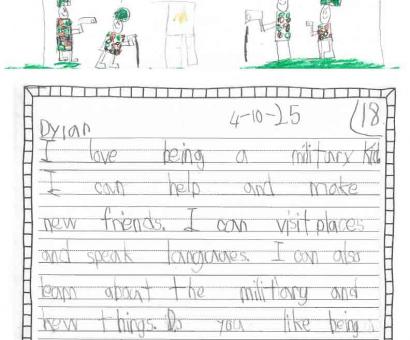 4-10-25 (18
Dylan
I love being a military kid
I can help and make
new friends. I can visit places
and speak languages. I can also
learn about the military and
new things. Do you like being